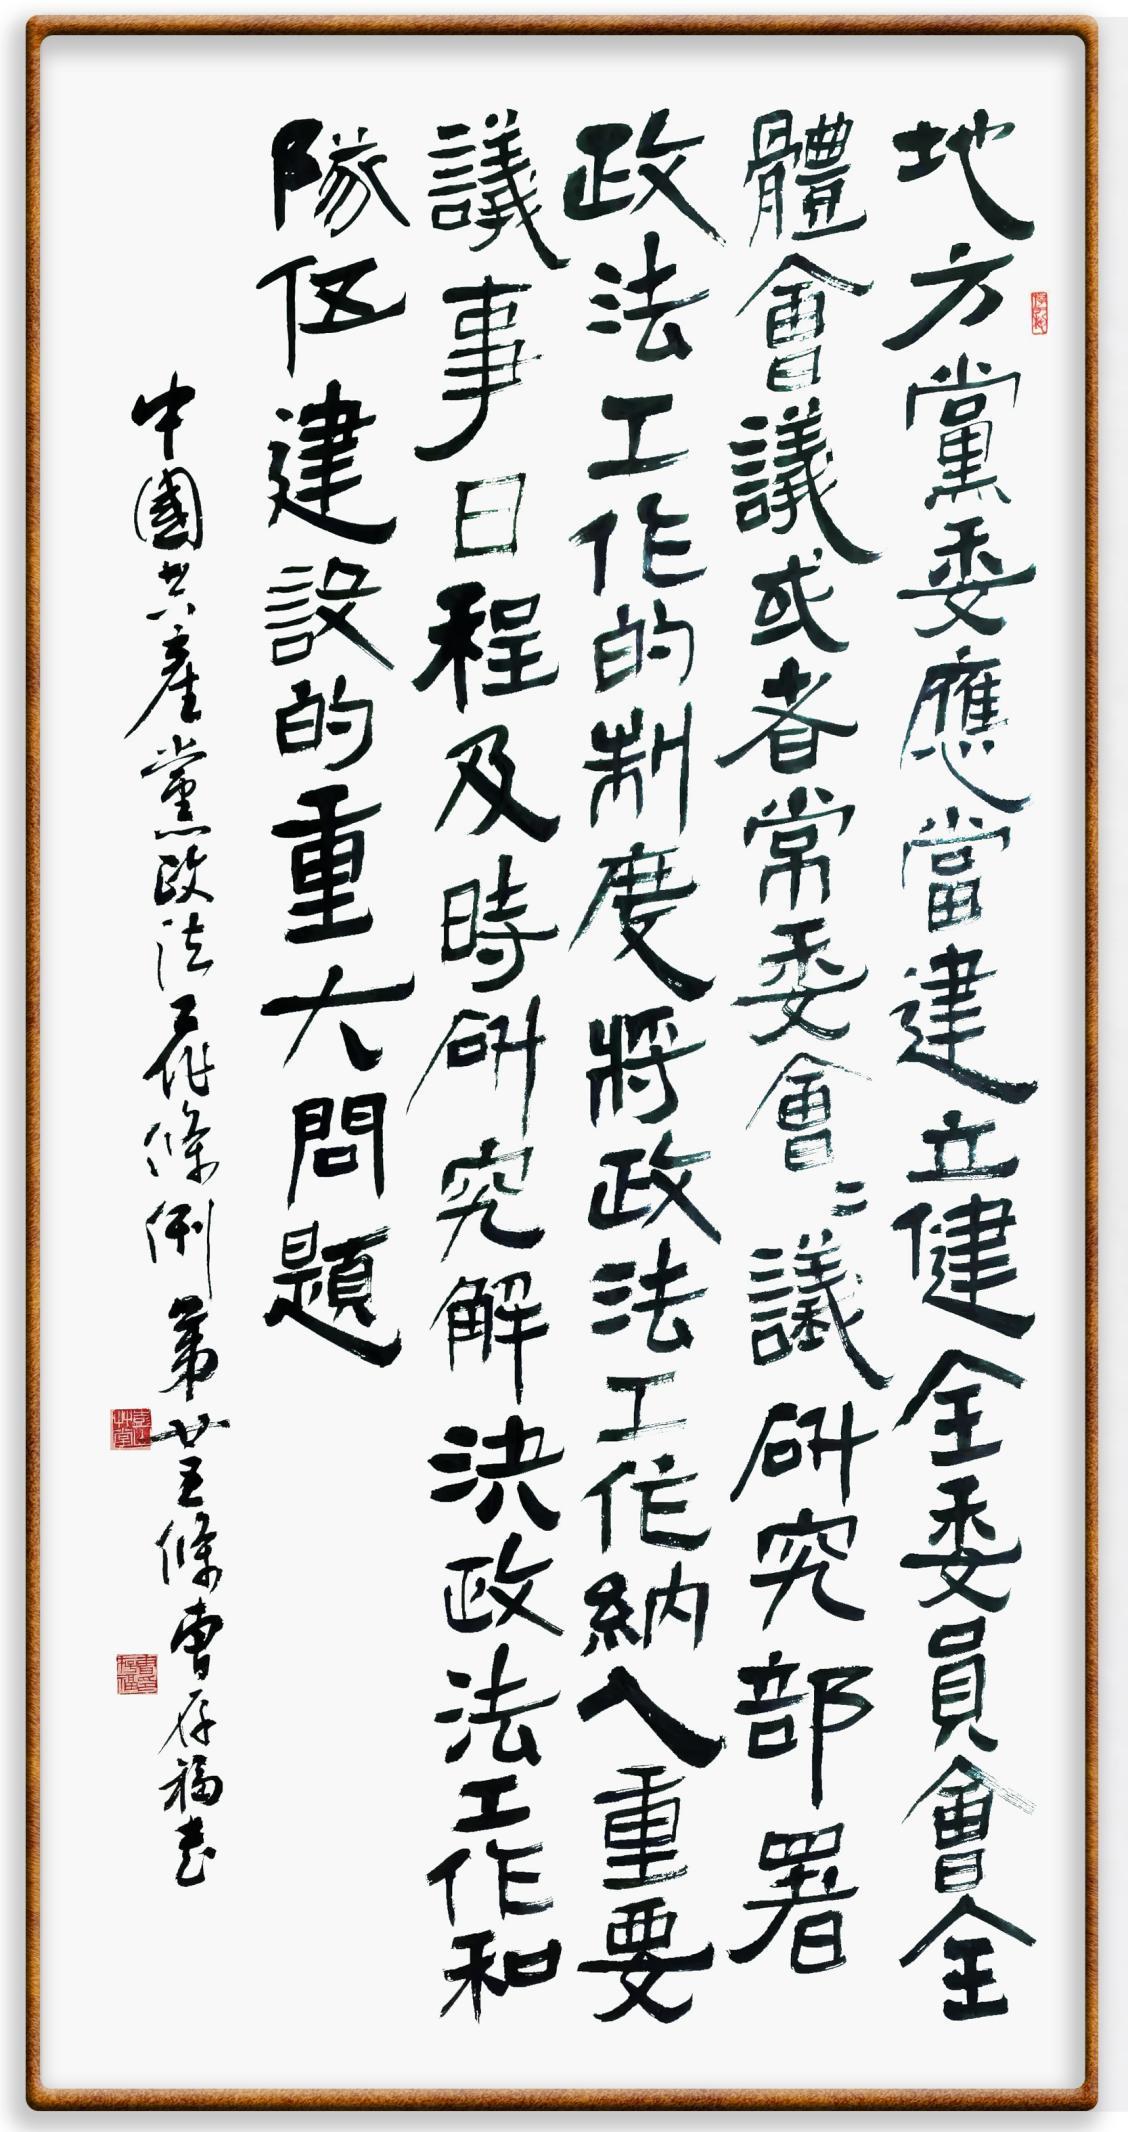 地方黨委應當建立健全委員會全
體會議或者常委會〻議研究部署
政法工作的制度將政法工作納入重要
議事日程及時研究解決政法工作和
隊伍建設的重大問題
中國共產黨政法工作條例第廿五條曹存福書